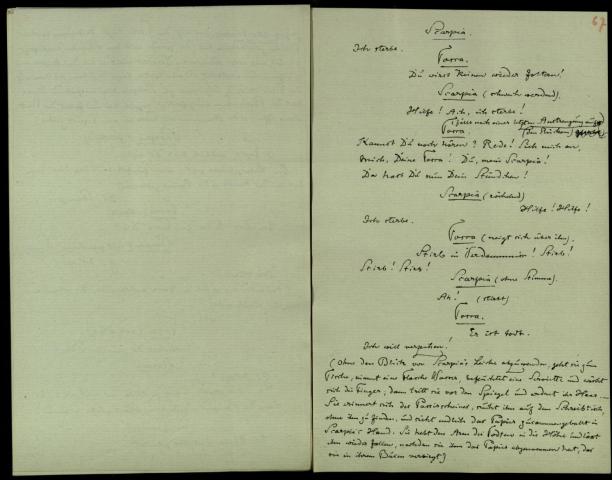 67
Scarpia.
Ich sterbe.
Tosca.
Du wirst keinen wieder foltern!
Scarpia (schwach werdend).
Hilfe! Ach, ich sterbe!
(fällt mit einer letzten Anstrengung auf
Tosca. (den Rücken)
Kannst Du noch hören? Rede! Sieh mich an,
mich, Deine Tosca! Du, mein Scarpia!
Da hast Du nun Dein Stündchen!
Scarpia (röchelnd)
Hilfe! Hilfe!
Ich sterbe.
Tosca (neigt sich über ihn).
Stirb in Verdammniss! Stirb!
Stirb! Stirb!
Scarpia (ohne Stimme).
Ah! (stirbt)
Tosca.
Er ist todt.
Ich will verzeihen!
(Ohne den Blick von Scarpia's Leiche abzuwenden, geht sie zum
Tische, nimmt eine Flasche Wasser, befeuchtet eine Serviette und wäscht
sich die Finger; dann tritt sie vor den Spiegel und ordnet ihr Haar. –
Sie erinnert sich des Passirscheines, sucht ihn auf dem Schreibtisch,
ohne ihn zu finden, und sieht endlich das Papier zusammengeballt in
Scarpia's Hand. Sie hebt den Arm des Todten in die Höhe und lässt
ihn wieder fallen, nachdem sie ihm das Papier abgenommen hat, das
sie in ihrem Busen verbirgt)